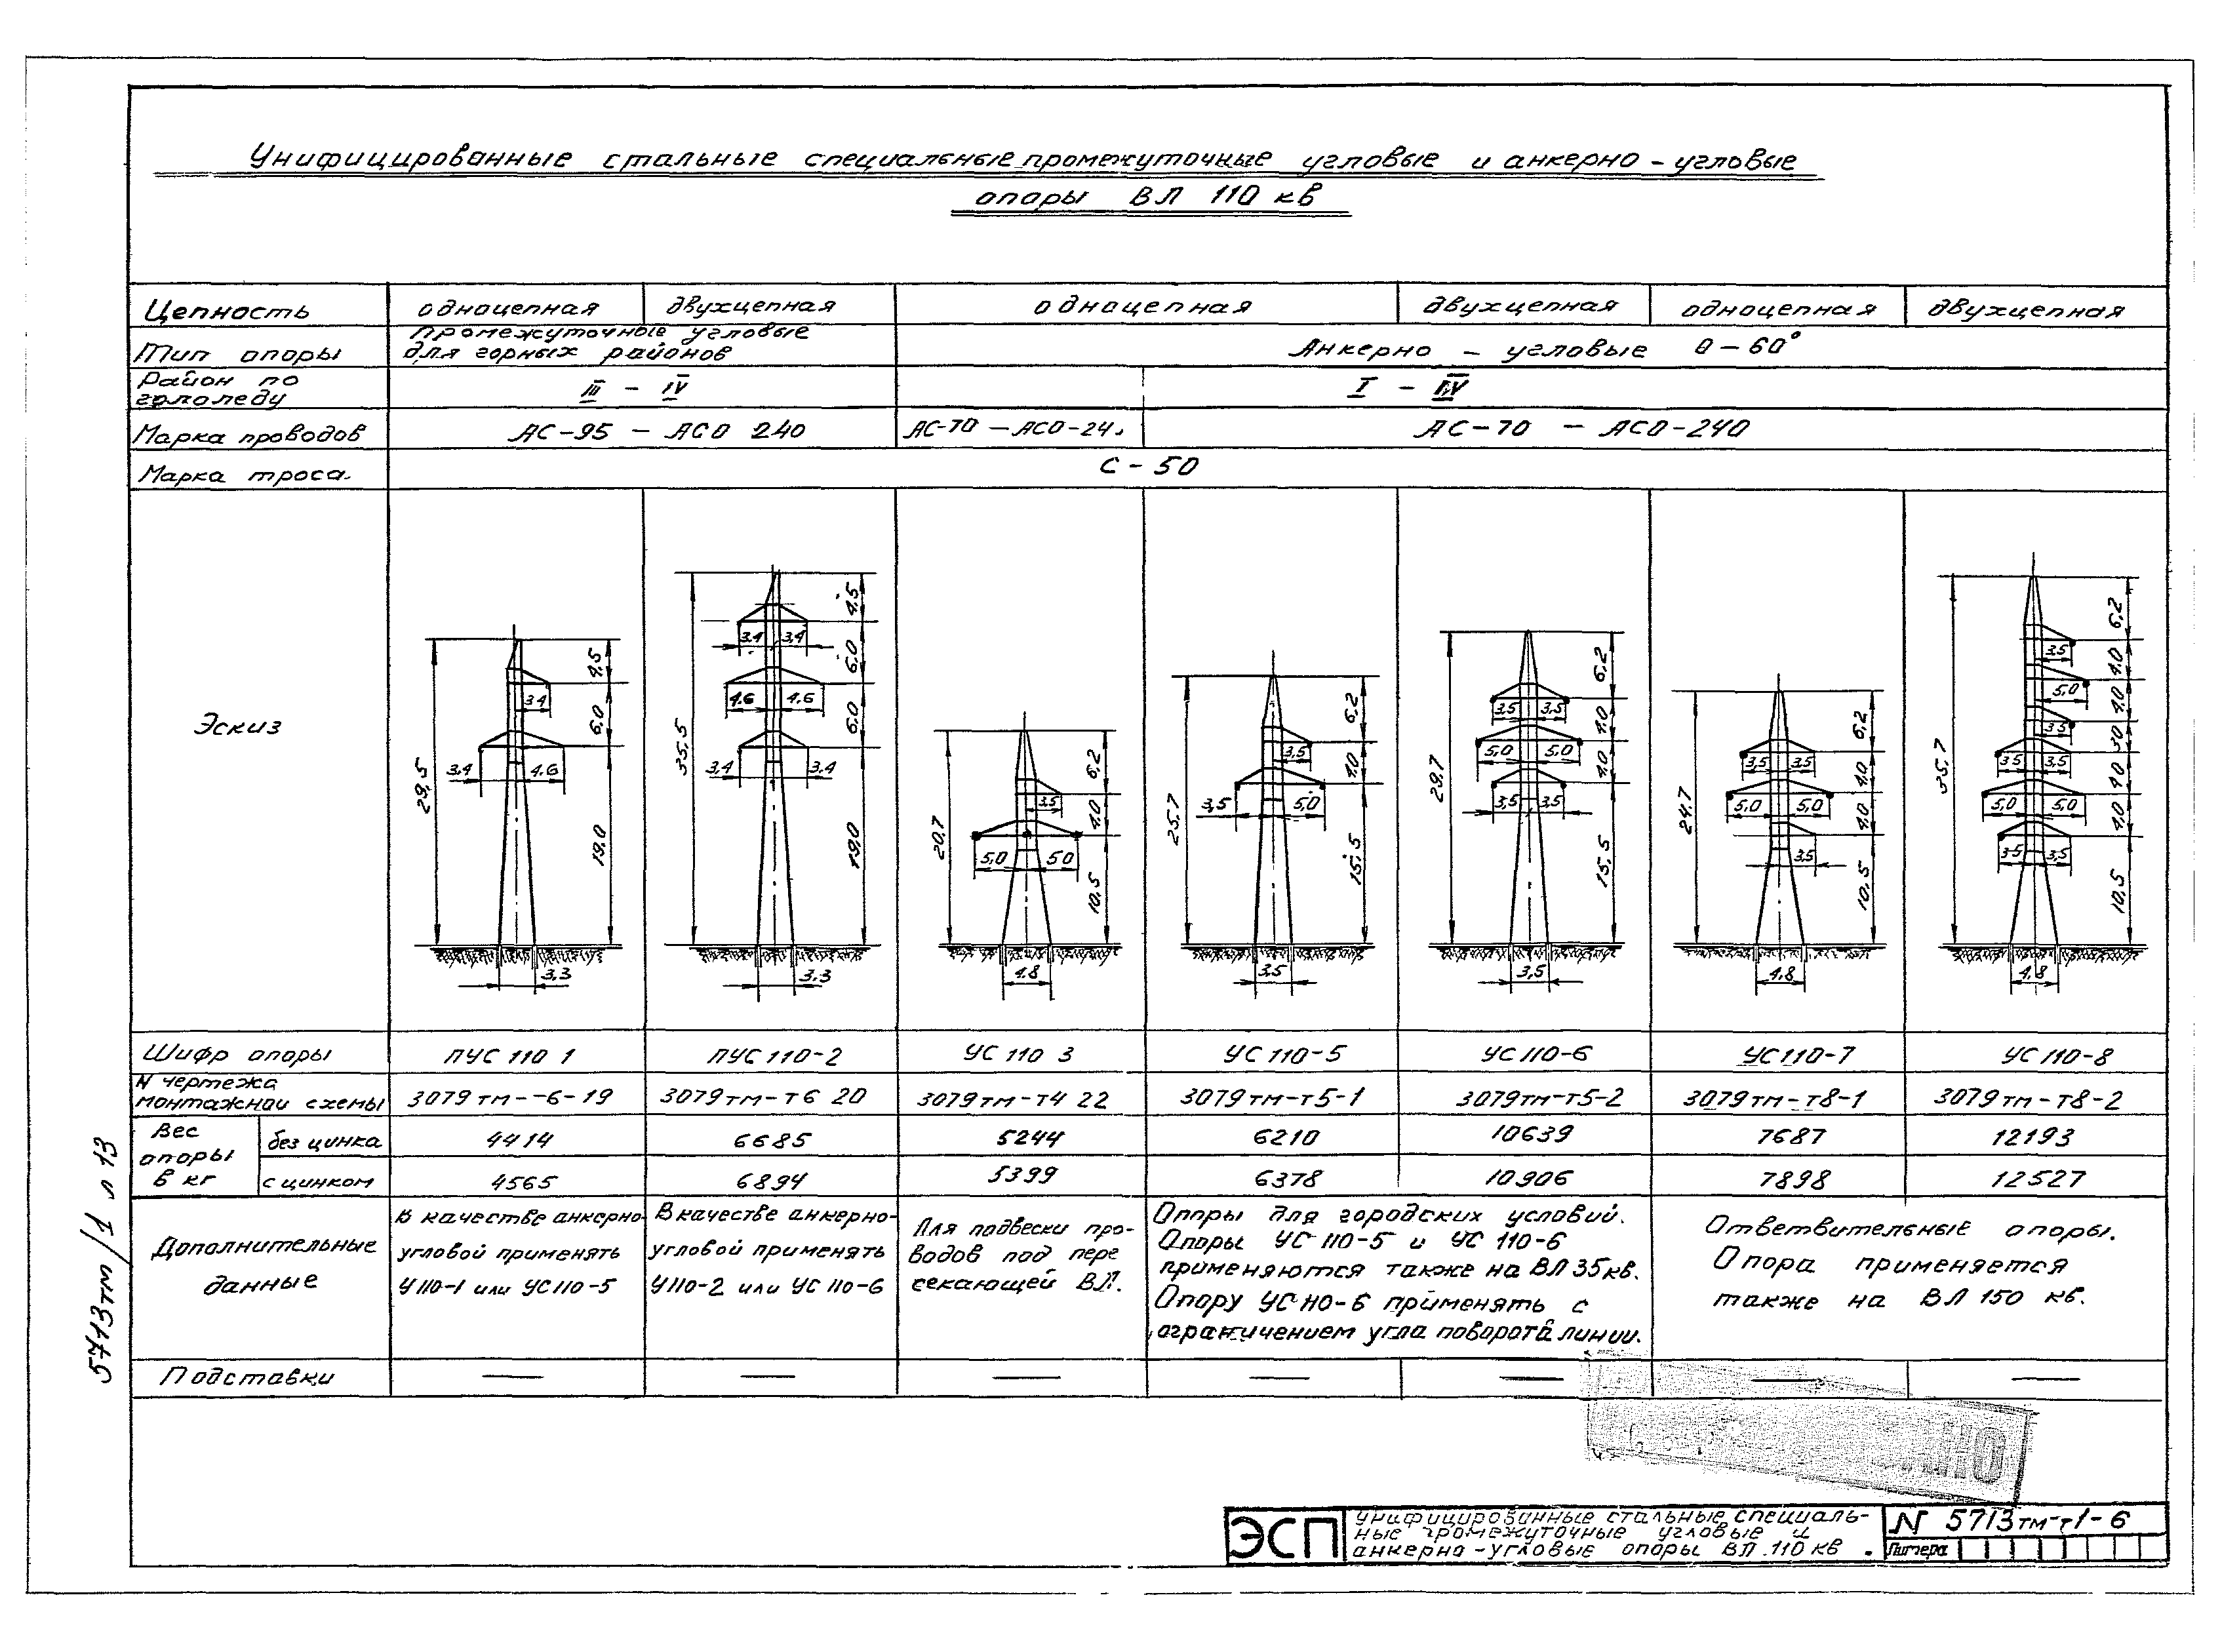 Унифицированные стальные специальные промежуточные угловые и анкерно-угловые
опоры ВЛ 110 кв
Цепность одноцепная двухцепная одноцепная двухцепная одноцепная двухцепная
Тип опоры Промежуточные угловые для горных районов Анкерно - угловые 0-60°
Район по гололеду III - IV I - IV
Марка проводов АС-95 - АСО 240 АС-70 - АСО-24 АС-70 - АСО-240
Марка троса. С-50
Эскиз
29,5 4,5 6,0 19,0 3.4 3.4 4.6 3.3
35,5 4,5 6,0 6,0 19,0 3.4 3.4 4.6 4.6 3.4 3.4 3.3
20,7 6,2 4,0 10,5 3,5 5,0 5,0 4.8
25,7 6,2 4,0 15,5 3,5 3,5 5,0 3,5
29,7 6,2 4,0 4,0 15,5 3,5 3,5 5,0 5,0 3,5 3,5 3,5
24,7 6,2 4,0 4,0 10,5 3,5 3,5 5,0 5,0 3,5 4.8
35,7 6,2 4,0 4,0 3,0 4,0 4,0 10,5 3,5 5,0 3,5 3,5 3,5 5,0 5,0 3,5 3,5 4.8
Шифр опоры ПУС 110 1 ПУС 110-2 УС 110 3 УС 110-5 УС 110-6 УС110-7 УС 110-8
N чертежа монтажной схемы 3079тм--6-19 3079тм-т6 20 3079тм-т4 22 3079тм-т5-1 3079тм-т5-2 3079тм-т8-1 3079тм-т8-2
Вес опоры в кг
без цинка 4414 6685 5244 6210 10639 7687 12193
с цинком 4565 6894 5399 6378 10906 7898 12527
Дополнительные данные
В качестве анкерно-
угловой применять
У110-1 или УС110-5
В качестве анкерно-
угловой применять
У110-2 или УС 110-6
Для подвески про-
водов под пере
секающей ВЛ.
Опоры для городских условий.
Опоры УС 110-5 и УС 110-6
применяются также на ВЛ 35кв.
Опору УС110-6 применять с
ограничением угла поворота линии.
Ответвительные опоры.
Опора применяется
также на ВЛ 150 кв.
Подставки — — — — — — —
5713тм/1 л 13
ЭСП
Унифицированные стальные специаль-
ные промежуточные угловые и
анкерно-угловые опоры ВЛ.110 кв.
N 5713тм-т1-6
Литера